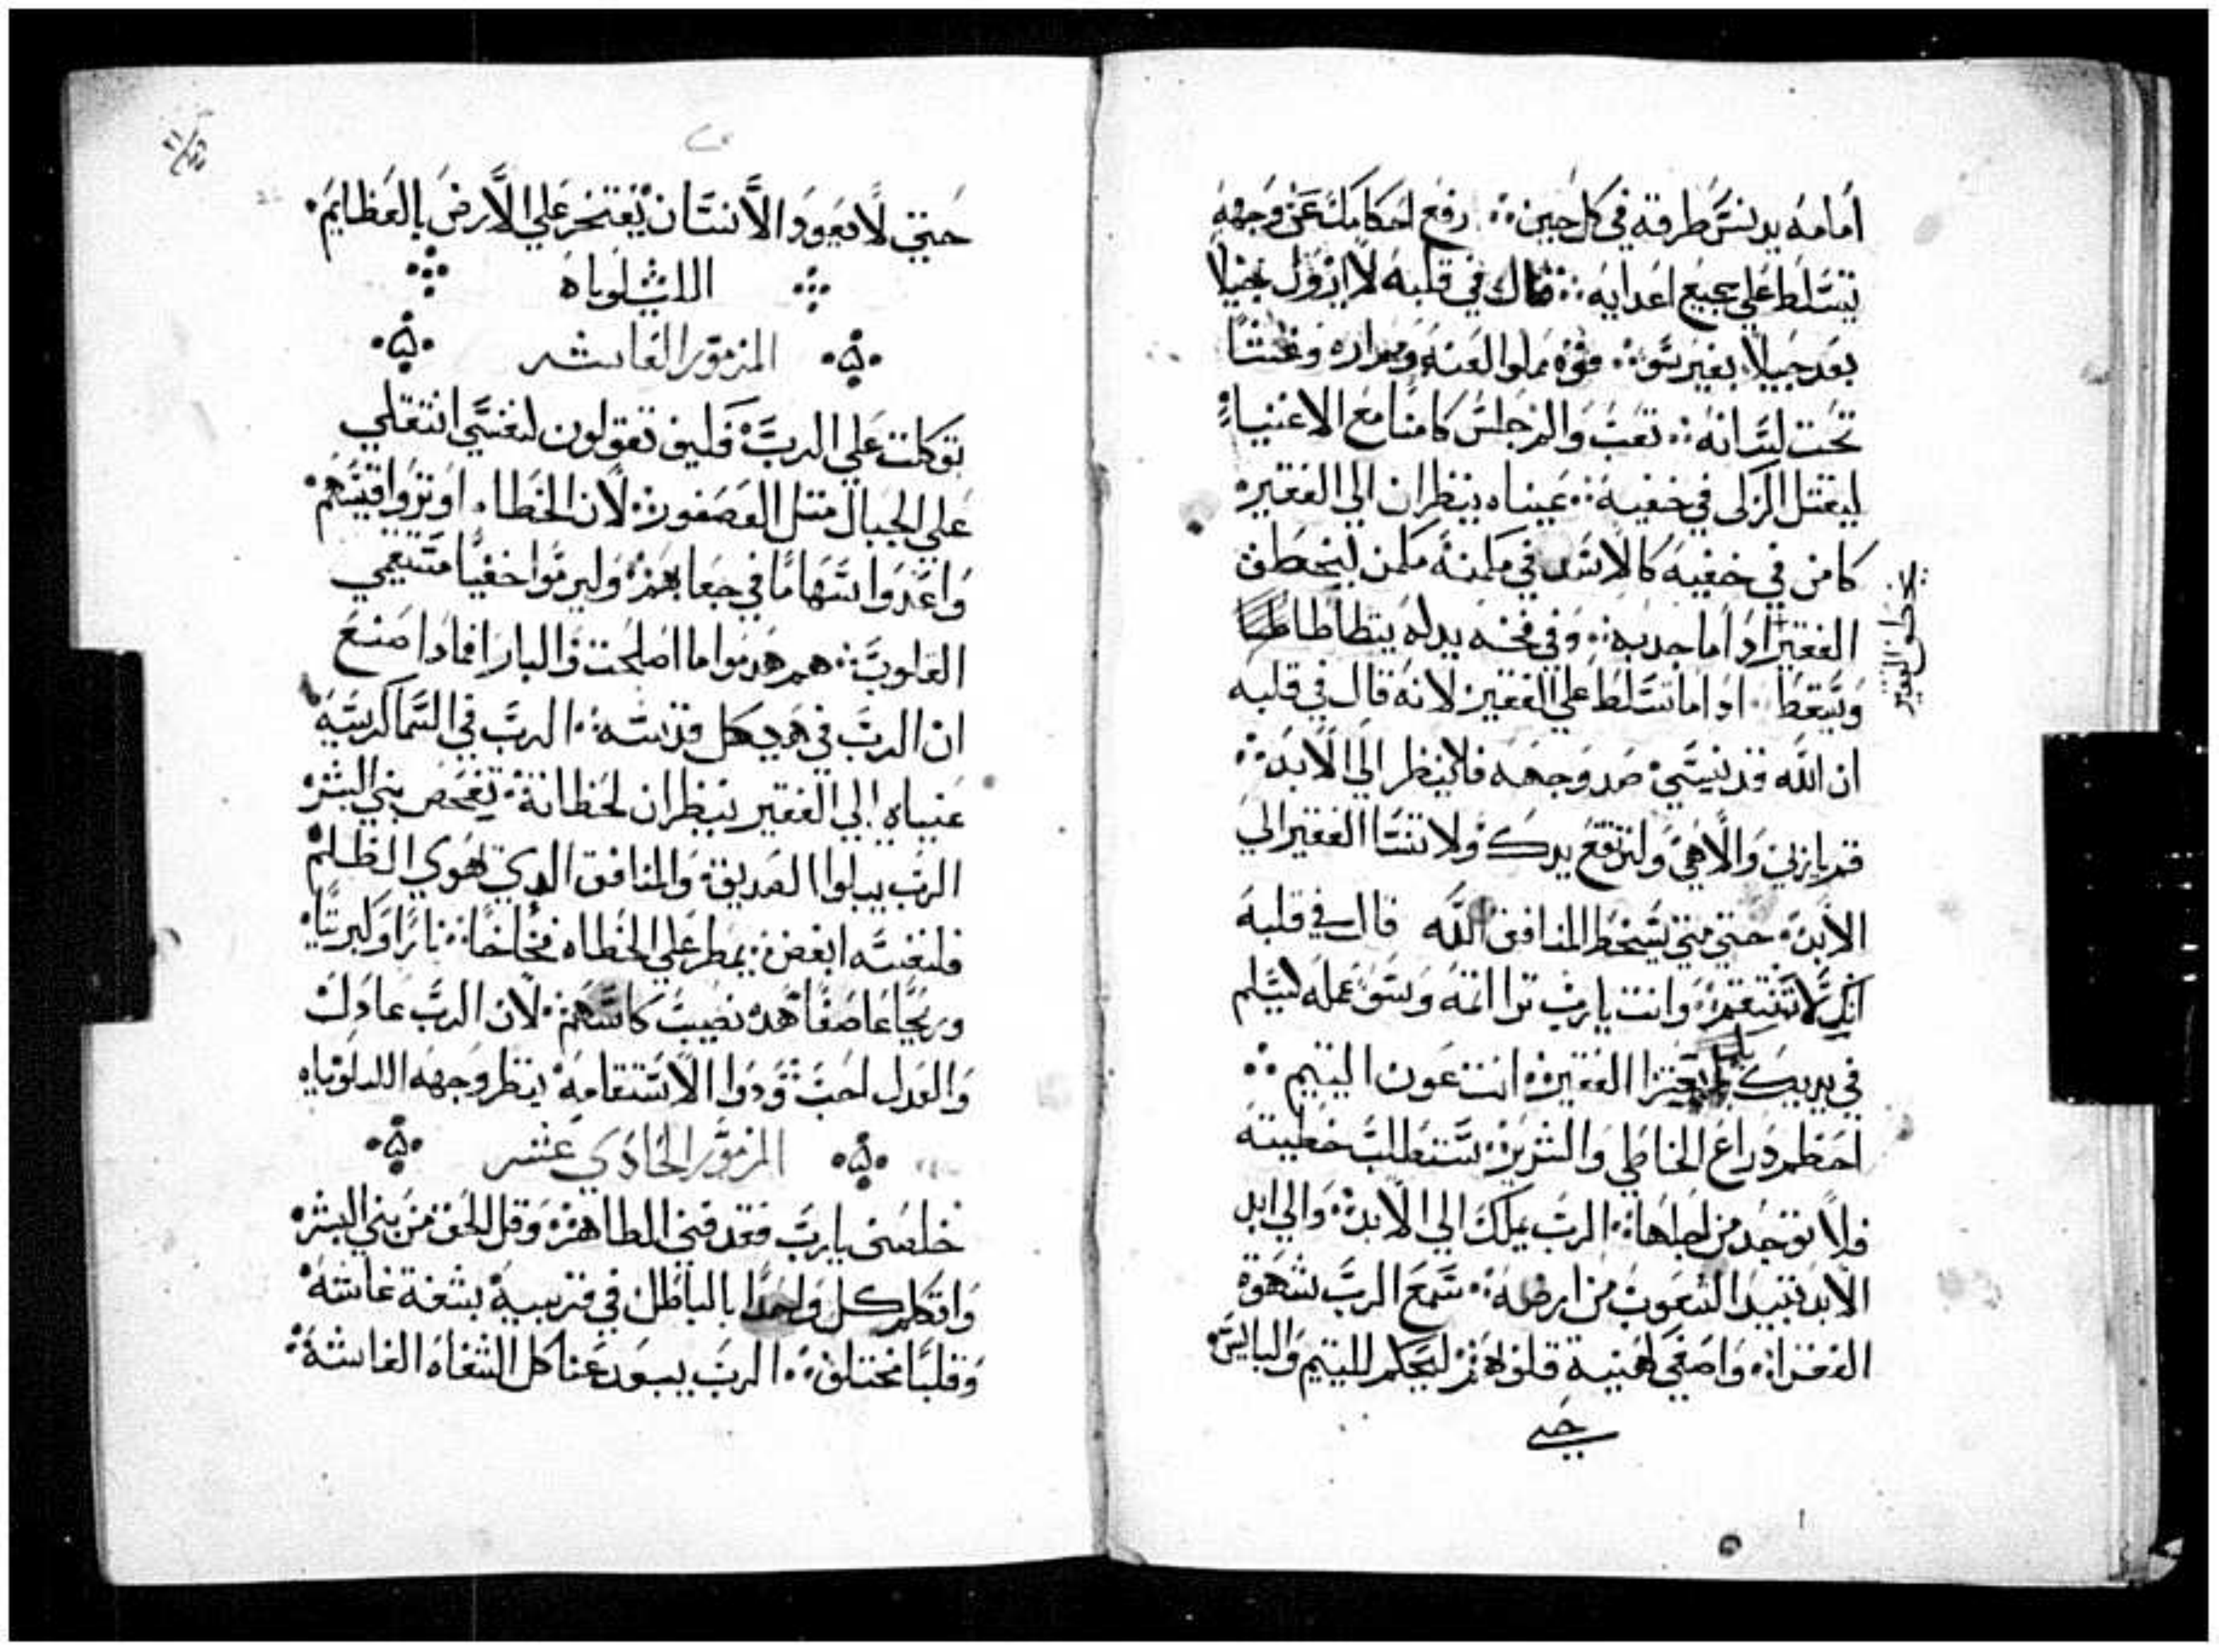 أمامه يدنس طرقه في كل حين رفع احكامك عن وجهه
يتسلط علي جميع اعدايه قال في قلبه لا ازول جيلا
بعد جيلا بغير سو فوه مملوا لعنه ومراره وغشا
تحت لسانه تعب والم جلس كامنا مع الاغنياء
ليقتل الزكى في خفيه عيناه ينظران الي الفقير
كامن في خفيه كالاسد في مكمنه مكمن ليخطف
يخطف الفقير
الفقير ادا ما جدبه وفي فخه يدله يتطاطا
ويسقط ادا ما تسلط علي الفقير لانه قال في قلبه
ان الله قد نسي صد وجهه فلا ينظر الي الابد
قم يا ربي والاهي ولترتفع يدك ولا تنسا الفقير الي
الابد حتي متي يسخط المنافق الله قال في قلبه
انك لا تنتقم وانت يارب ترا اتمه وسو عمله ليسلم
في يديك الفقير انت عون اليتيم
احطم دراع الخاطي والشرير ستطلب خطيته
فلا توجد من اجلها الرب يملك الي الابد والي ابد
الابد تبيد الشعوب من ارضه سمع الرب شهوة
الفقرا واصغي لهنية قلوبهم ليحكم لليتيم والبايس
حتي
حتي لا يعود الانسان يفتخر علي الارض بالعظايم
الليلوياه
المزمور العاشر
توكلت علي الرب فكيف تقولون لنفسي انتقلي
علي الجبال متل العصفور لان الخطاه اوتروا قسيهم
واعدوا سهاما في جعابهم وليرموا خفيا مستقيمي
القلوب هم هدموا ما اصلحت والبار فمادا صنع
ان الرب في هيكل قدسه الرب في السما كرسيه
عيناه الي الفقير ينظران لحظاته تفحص بني البشر
الرب يبلوا الصديق والمنافق الدي يهوي الظلم
فلنفسه ابغض يمطر علي الخطاه فخاخا نارا وكبريتا
وريحا عاصفا هده نصيب كاسهم لان الرب عادل
والعدل احب ودوا الاستقامه ينظر وجهه الليلوياه
المزمور الحادي عشر
خلصنى يارب فقد فني الطاهر وقل الحق من بني البشر
واتكلم كل واحدا بالباطل في قريبه بشفة غاشه
وقلبا مختلف الرب يبيد عنا كل الشفاه الغاشة